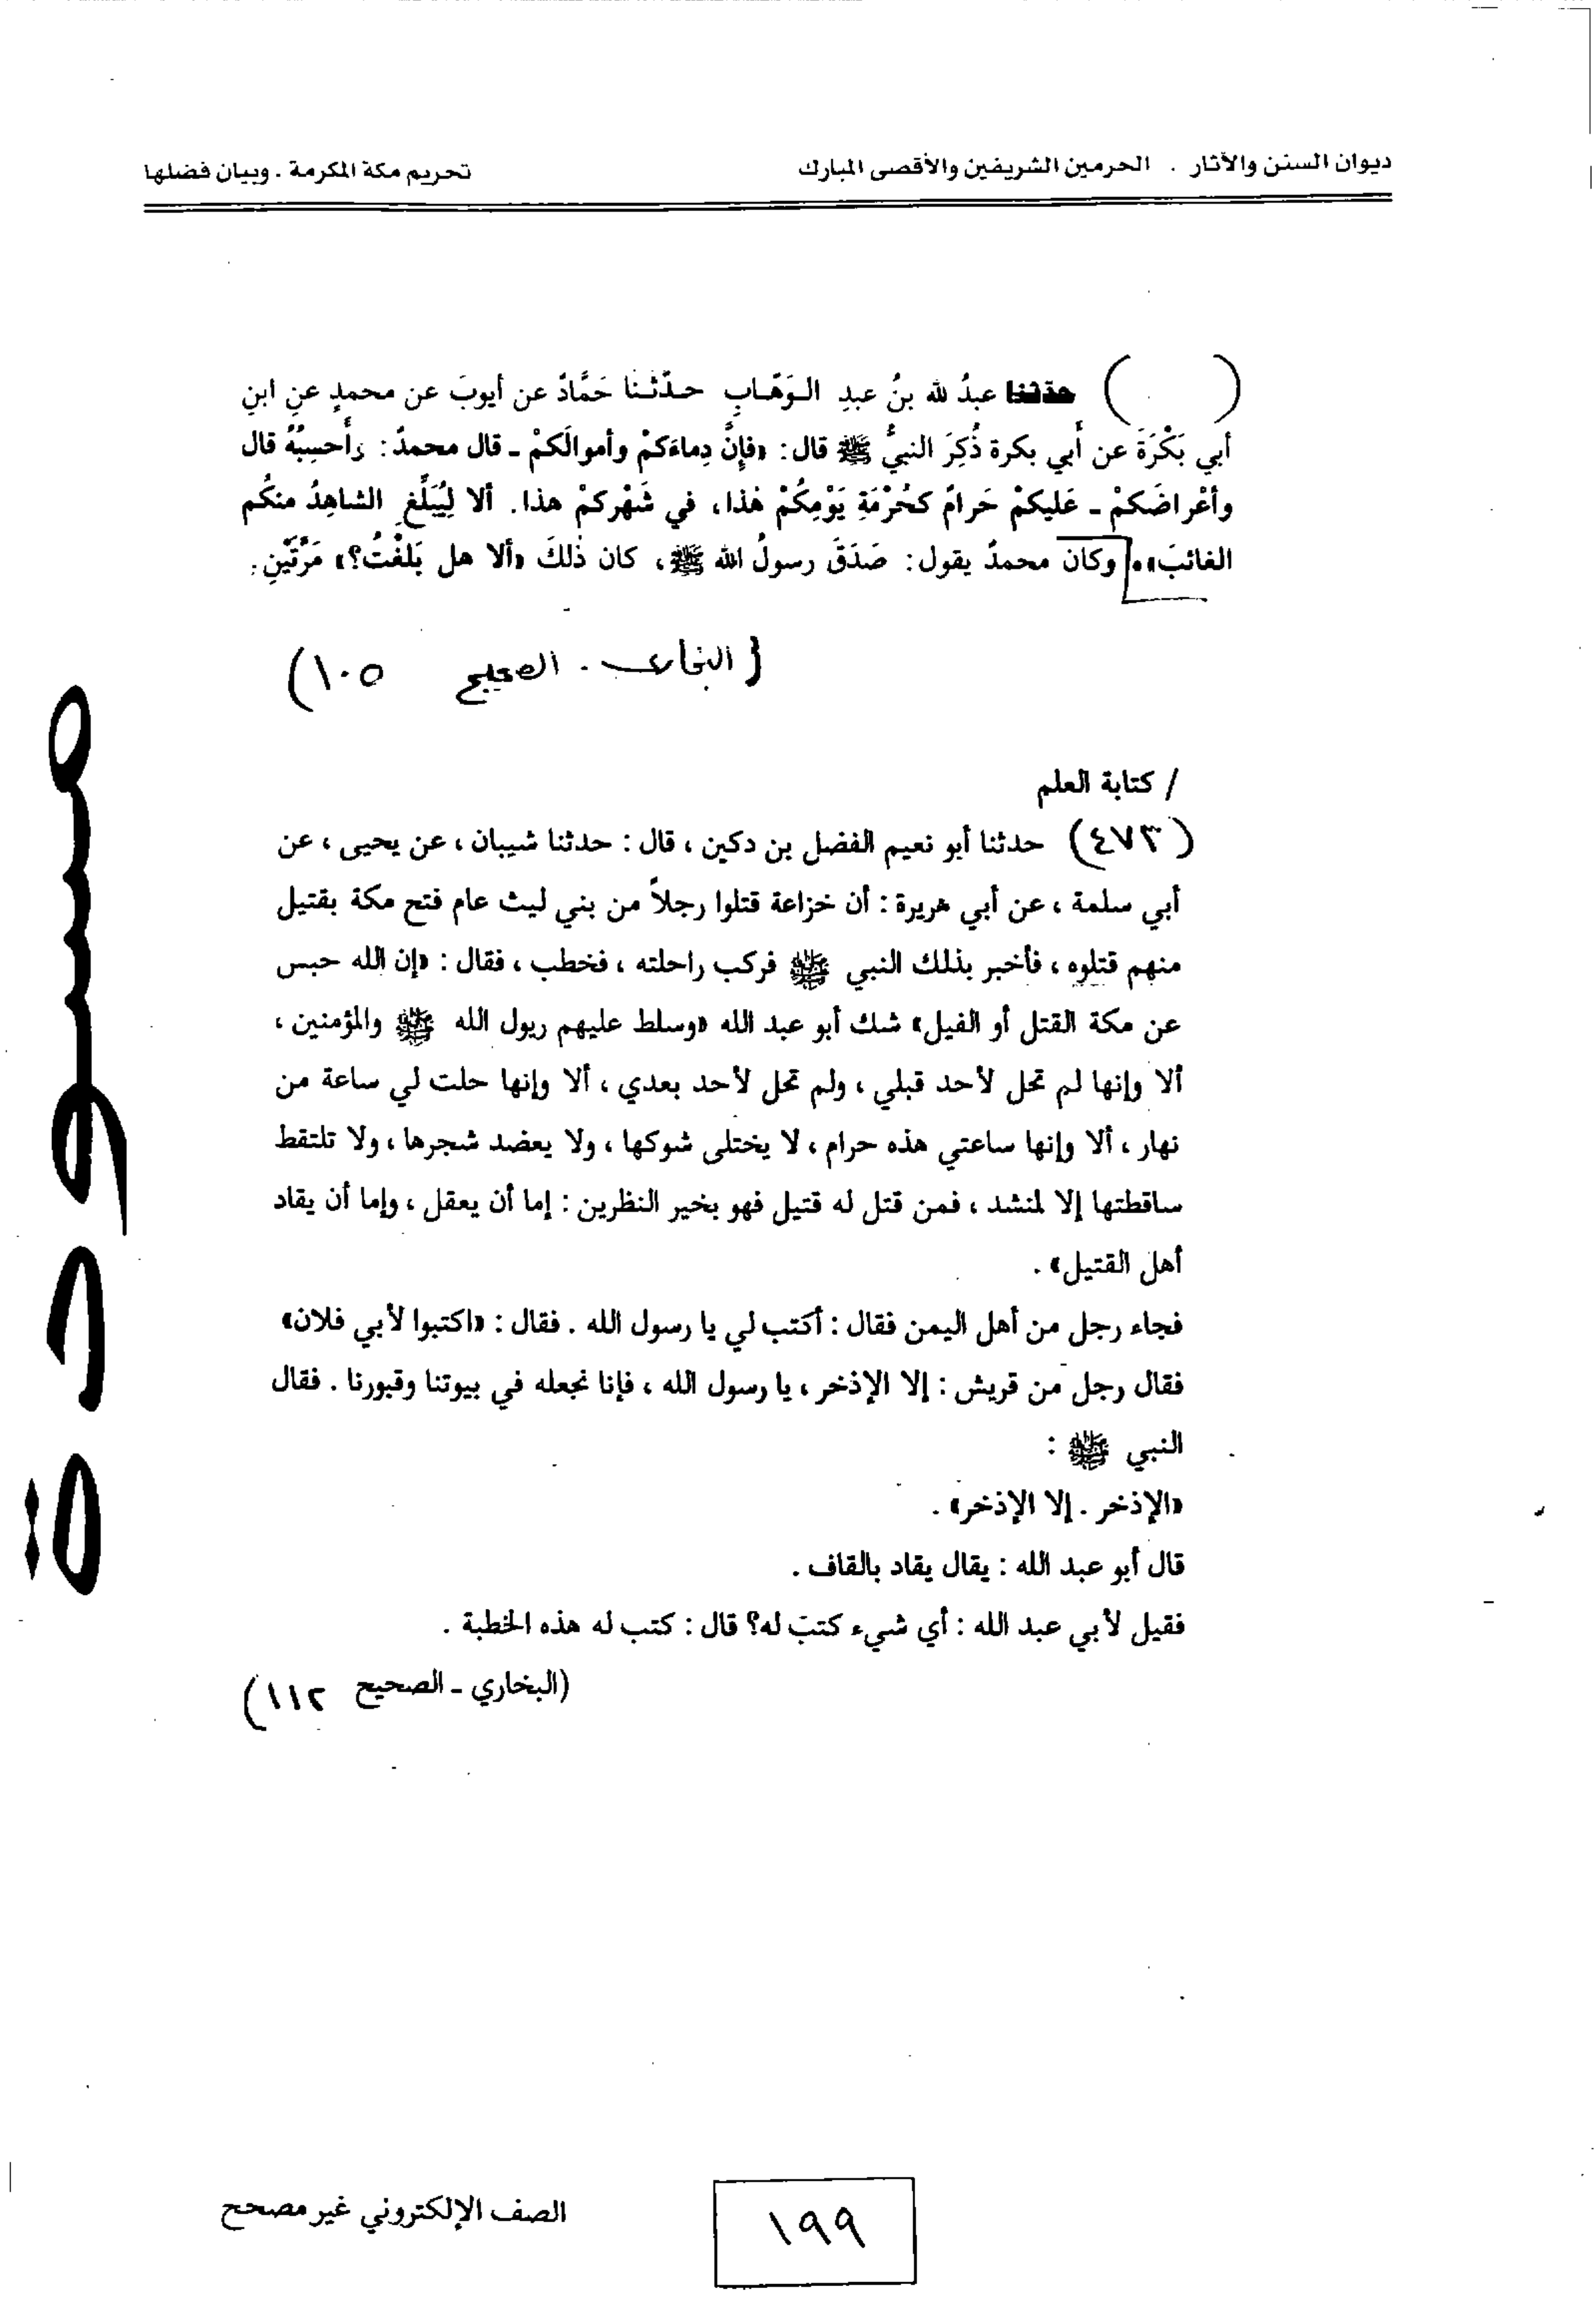 ديوان السنن والآثار . الحرمين الشريفين والأقصى المبارك
تحريم مكة المكرمة . وبيان فضلها
( ) حدثنا عبدُ لله بنُ عبدِ الوَهّابِ حدّثَنا حَمَّادٌ عن أيوبَ عن محمدٍ عنِ ابنِ
أبي بَكْرَةَ عن أبي بكرة ذُكِرَ النبيُّ ﷺ قال: «فإنَّ دِماءَكمْ وأموالَكمْ ـ قال محمدٌ: وأحسِبُهُ قال
وأعْراضَكمْ ـ عَليكمْ حَرامٌ كحُرْمَةِ يَوْمِكُمْ هٰذا، في شَهْركمْ هذا. ألا لِيُبَلِّغِ الشاهِدُ منكُم
الغائبَ». وكان محمدٌ يقول: صَدَقَ رسولُ الله ﷺ، كان ذٰلكَ «ألا هل بَلغْتُ؟» مَرَّتَينِ.
{البخاري . الصحيح ١٠٥)
/ كتابة العلم
(٤٧٣) حدثنا أبو نعيم الفضل بن دكين ، قال : حدثنا شيبان ، عن يحيى ، عن
أبي سلمة ، عن أبي هريرة : أن خزاعة قتلوا رجلاً من بني ليث عام فتح مكة بقتيل
منهم قتلوه ، فأخبر بذلك النبي ﷺ فركب راحلته ، فخطب ، فقال : «إن الله حبس
عن مكة القتل أو الفيل» شك أبو عبد الله «وسلط عليهم ريول الله ﷺ والمؤمنين ،
ألا وإنها لم تحل لأحد قبلي ، ولم تحل لأحد بعدي ، ألا وإنها حلت لي ساعة من
نهار ، ألا وإنها ساعتي هذه حرام ، لا يختلى شوكها ، ولا يعضد شجرها ، ولا تلتقط
ساقطتها إلا لمنشد ، فمن قتل له قتيل فهو بخير النظرين : إما أن يعقل ، وإما أن يقاد
أهل القتيل» .
فجاء رجل من أهل اليمن فقال : أكتب لي يا رسول الله . فقال : «اكتبوا لأبي فلان»
فقال رجل من قريش : إلا الإذخر ، يا رسول الله ، فإنا نجعله في بيوتنا وقبورنا . فقال
النبي ﷺ :
«الإذخر . إلا الإذخر» .
قال أبو عبد الله : يقال يقاد بالقاف .
فقيل لأبي عبد الله : أي شيء كتب له؟ قال : كتب له هذه الخطبة .
(البخاري ـ الصحيح ١١٢)
مسودة
الصف الإلكتروني غير مصحح
١٩٩